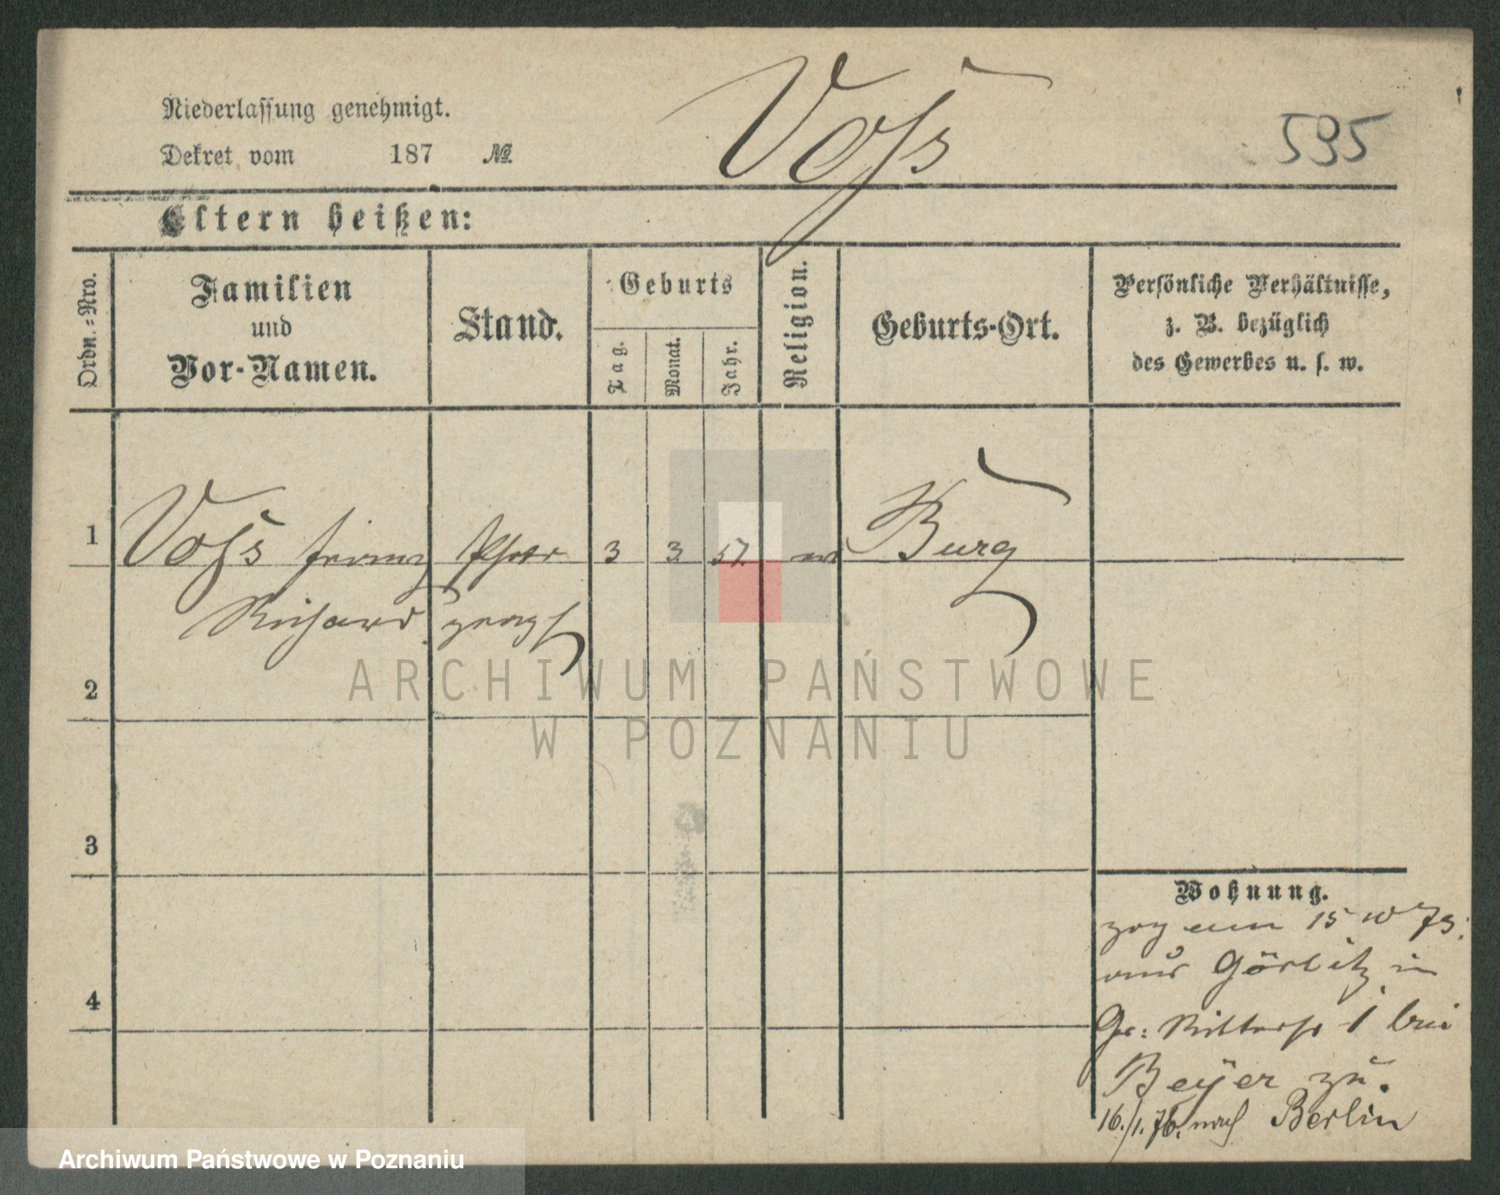 Niederlassung genehmigt.
Dekret vom 187 №
Voſs
595
Eltern heißen:
Ordn.=Nro.
Familien
und
Vor-Namen.
Stand.
Geburts
Tag.
Monat.
Jahr.
Religion.
Geburts-Ort.
Persönliche Verhältnisse,
z. B. bezüglich
des Gewerbes u. s. w.
1
Voſs Franz
Richard
Photo
graph
3 3 57. ev
Burg
2
3
4
Wohnung.
zog am 15 10 75.
aus Görlitz in
Gr: Ritterstr 1 bei
Beyer zu.
16./1. 76. nach Berlin
ARCHIWUM PAŃSTWOWE
W POZNANIU
Archiwum Państwowe w Poznaniu